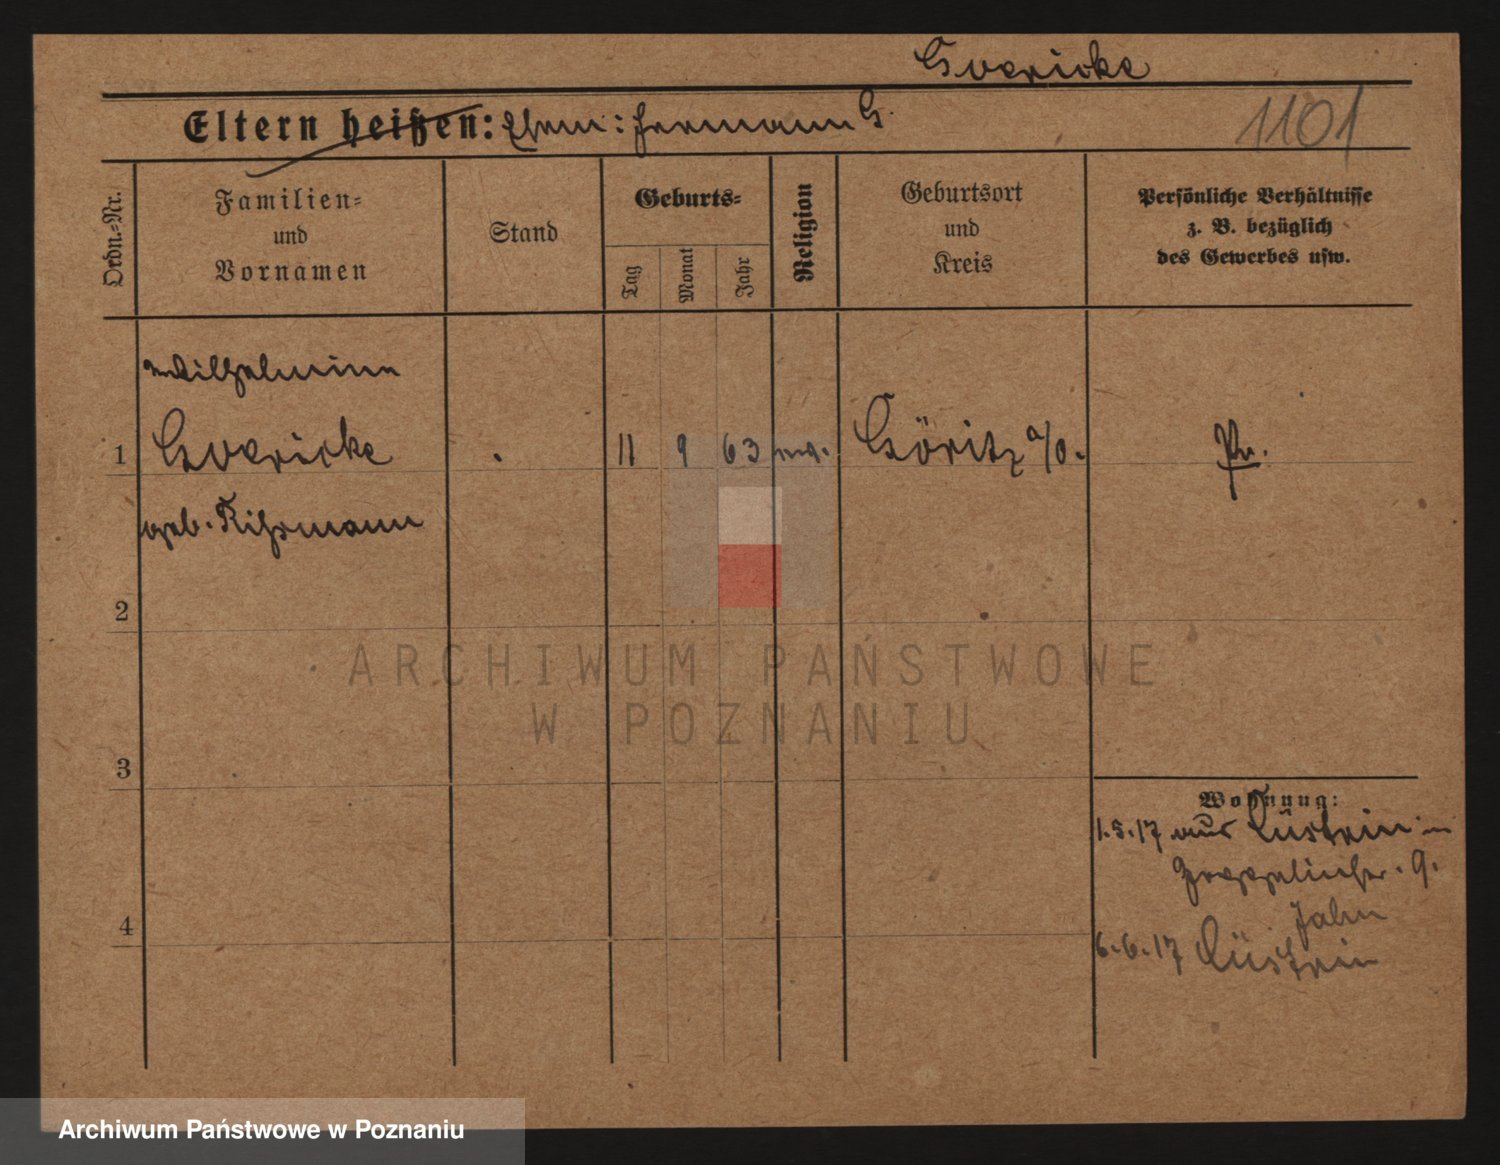 Goericke
Eltern heißen: Ehem: Hermann G.
1101
Ordn.-Nr.
Familien-
und
Vornamen
Stand
Geburts-
Tag
Monat
Jahr
Religion
Geburtsort
und
Kreis
Persönliche Verhältnisse
z. B. bezüglich
des Gewerbes usw.
Wilhelmine
1 Goericke . 11 9 63 Göritz a/O. Pr.
geb. Kissmann
2
3
4
Wohnung:
1.5.17 aus Cüstrin in
9.
Jahn
6.6.17 Cüstrin
ARCHIWUM PAŃSTWOWE
W POZNANIU
Archiwum Państwowe w Poznaniu